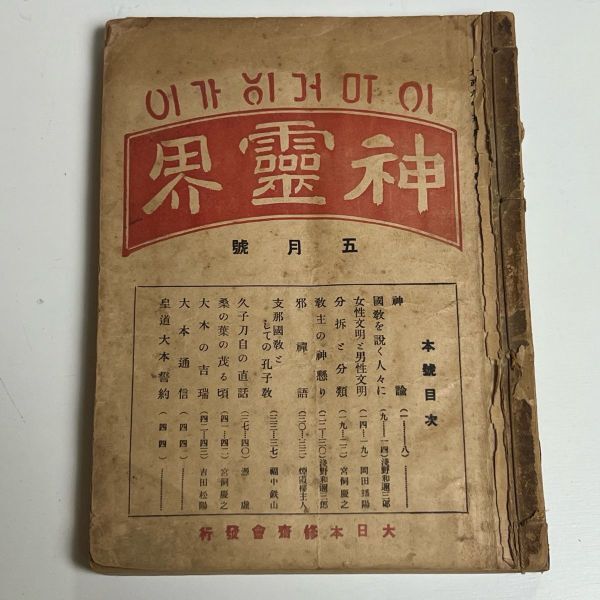 神靈界
五月號
本號目次
神論（一——八）
國敎を說く人々に（九—一四）淺野和邇三郎
女性文明と男性文明（一四—一九）岡田播陽
分拆と分類（一九—二二）宮飼慶之
敎主の神懸り（二二—三〇）淺野和邇三郎
邪禪語（三〇—三三）煙霞樓主人
支那國敎と
しての孔子敎（三三—三七）福中鉄山
久子刀自の直話（三七—四〇）憑虛
桑の葉の茂る頃（四一—四二）宮飼慶之
大本の吉瑞（四二—四三）吉田松陽
大本通信（四四）
皇道大本誓約（四四）
大日本修齋會發行